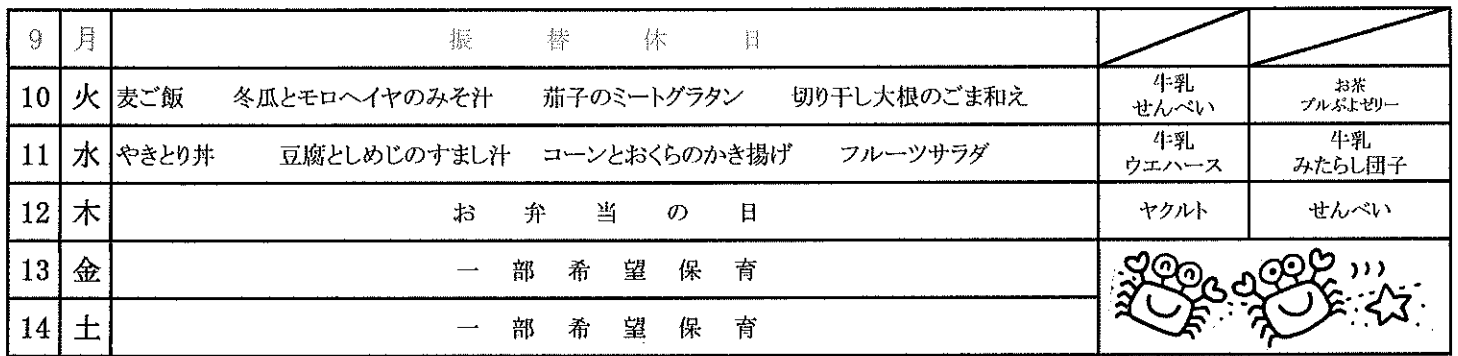 9 月 振替休日
10 火 麦ご飯 冬瓜とモロヘイヤのみそ汁 茄子のミートグラタン 切り干し大根のごま和え 牛乳 せんべい お茶 プルぷよゼリー
11 水 やきとり丼 豆腐としめじのすまし汁 コーンとおくらのかき揚げ フルーツサラダ 牛乳 ウエハース 牛乳 みたらし団子
12 木 お弁当の日 ヤクルト せんべい
13 金 一部希望保育
14 土 一部希望保育